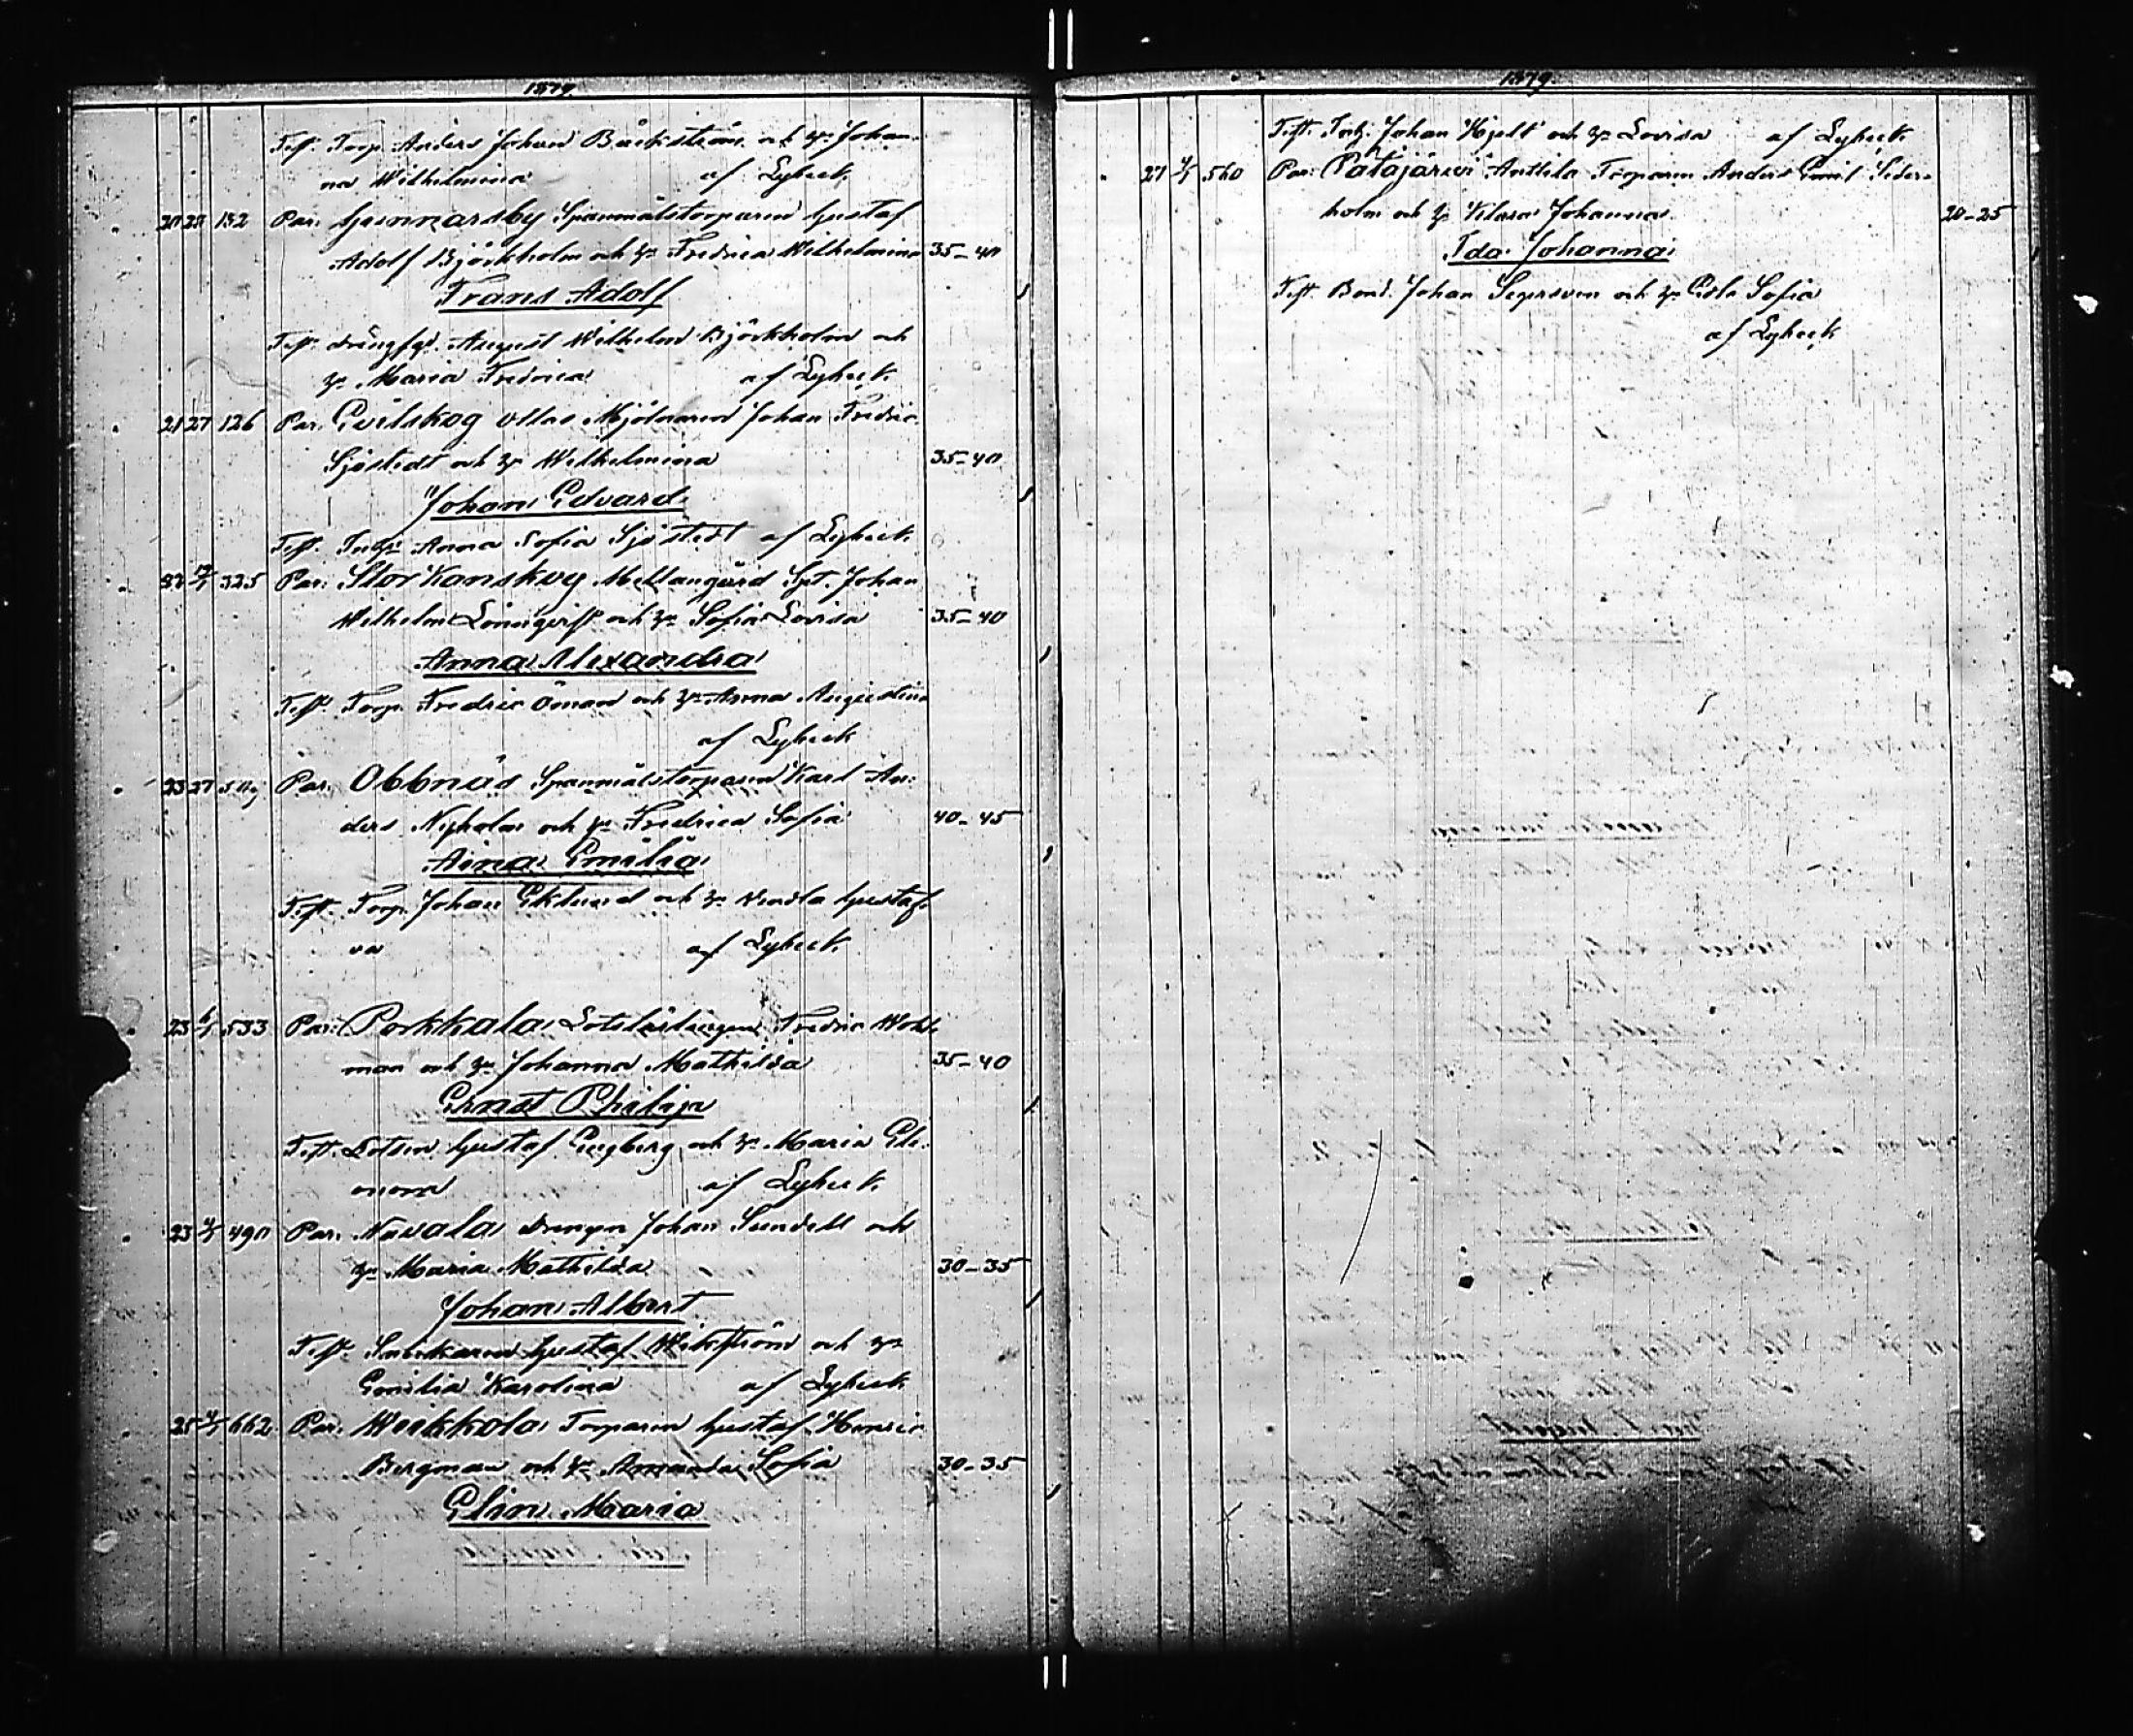 1879.
Test. Torp. Anders Johan Bäckström och h. Johan-
na Wilhelmina af Lybeck.
20 27 132 Par. Gunnarsby Spanmålstorparen Gustaf
Adolf Björkholm och h. Fredrica Wilhelmina 35-40
Frans Adolf
Test. August Wilhelm Björkholm och
h. Maria Fredrica af Lybeck.
21 27 126 Par. Evitskog Ollas Mjölnaren Johan Fredric
Sjöstedt och h. Wilhelmina 35-40
Johan Edvard
Test. Anna Sofia Sjöstedt af Lybeck.
325 Par. Stor Kanskog Mellangård Johan
Wilhelm Lönnqvist och h. Sofia Lovisa 35-40
Anna Alexandra
Test. Torp. Fredric Öman och h. Anna Augustina
af Lybeck
23 27 Par. Obbnäs Spanmålstorparen Karl An-
ders Nyholm och h. Fredrica Sofia 40-45
Aina Emilia
Test. Torp. Johan Eklund och h. Wendla Gustaf-
va af Lybeck.
23 6/1 533 Par. Porkkala Lotslärlingen Fredric Wohl-
man och h. Johanna Mathilda 35-40
Ernst Philip
Test. Lotsen Gustaf Engberg och h. Maria Ele-
onora af Lybeck.
23 490 Par. Navala Drengen Johan Sundell och
h. Maria Mathilda 30-35
Johan Albert
Test. Snickaren Gustaf Wikström och h.
Emilia Karolina af Lybeck
25 662 Par. Weikkola Torparen Gustaf Henric
Bergman och h. Amanda Sofia 30-35
Elin Maria
1879.
Test. Johan Hjelt och h. Lovisa af Lybeck.
27 560 Par. Patajärvi Anttila Torparen Anders Emil Seder-
holm och h. Klara Johanna 20-25
Ida Johanna
Test. Bond. Johan Segersven och h. Eda Sofia
af Lybeck